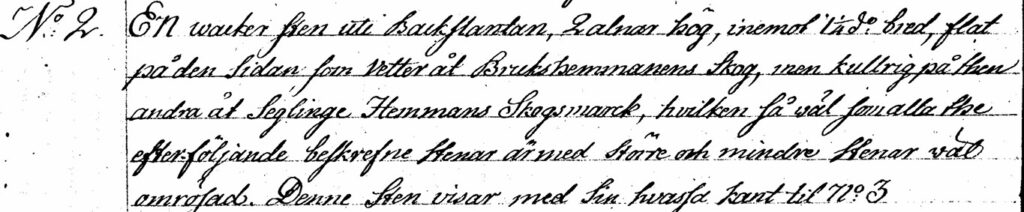 No. 2. En wacker Sten uti Backslantan, 2 alnar hög, inemot 1¼ do bred, flat
på den sidan som Vetter åt Brukshemmanens Skog, men kullrig på then
andra åt Seglinge Hemmans Skogsmarck, hvilken så väl som alla the
efterföljande beskrefne Stenar är med större och mindre Stenar väl
omrösad. Denne Sten visar med Sin hvassa kant til No 3